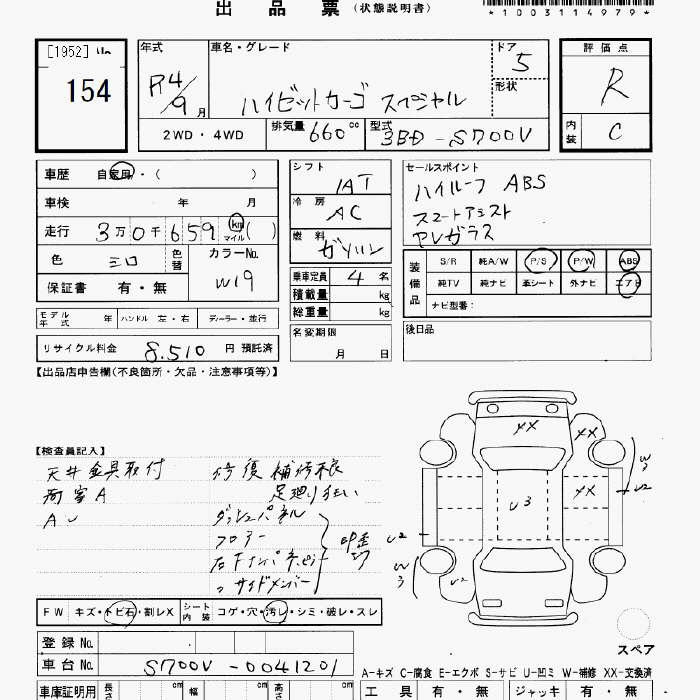 出品票 (状態説明書)
*1003114979*
[1952]
154
年式 R4/9月
車名・グレード ハイゼットカーゴ スペシャル
ドア 5
形状
2WD・4WD
排気量 660cc
型式 3BD-S700V
評価点 R
内装 C
車歴 自家用・( )
車検 年 月
走行 3万0千659 km マイル ( )
色 シロ 色替
カラーNo. W19
保証書 有・無
シフト IAT
冷房 AC
燃料 ガソリン
乗車定員 4名
積載量 kg
総重量 kg
名変期限 月 日
セールスポイント
ハイルーフ ABS
スマートアシスト
PVガラス
装備品 S/R 純A/W P/S P/W ABS
純TV 純ナビ 革シート 外ナビ エアB
ナビ型番:
後日品
モデル年式 年 ハンドル 左・右 ディーラー・並行
リサイクル料金 8,510 円 預託済
【出品店申告欄(不良箇所・欠品・注意事項等)】
【検査員記入】
天井金具取付
両客A
AU
修復 補修痕
足廻り
ダッシュパネル
フロアー
サイドメンバー
U3
XX
XX
XX
W3
U2
U2
W3
U2
FW キズ・トビ石・割レX
シート内装 コゲ・穴・汚レ・シミ・破レ・スレ
登録No.
車台No. S700V-0041201
スペア
A-キズ C-腐食 E-エクボ S-サビ U-凹ミ W-補修 XX-交換済
車庫証明用 長さ cm 幅 cm 高さ cm
工具 有・無 ジャッキ 有・無